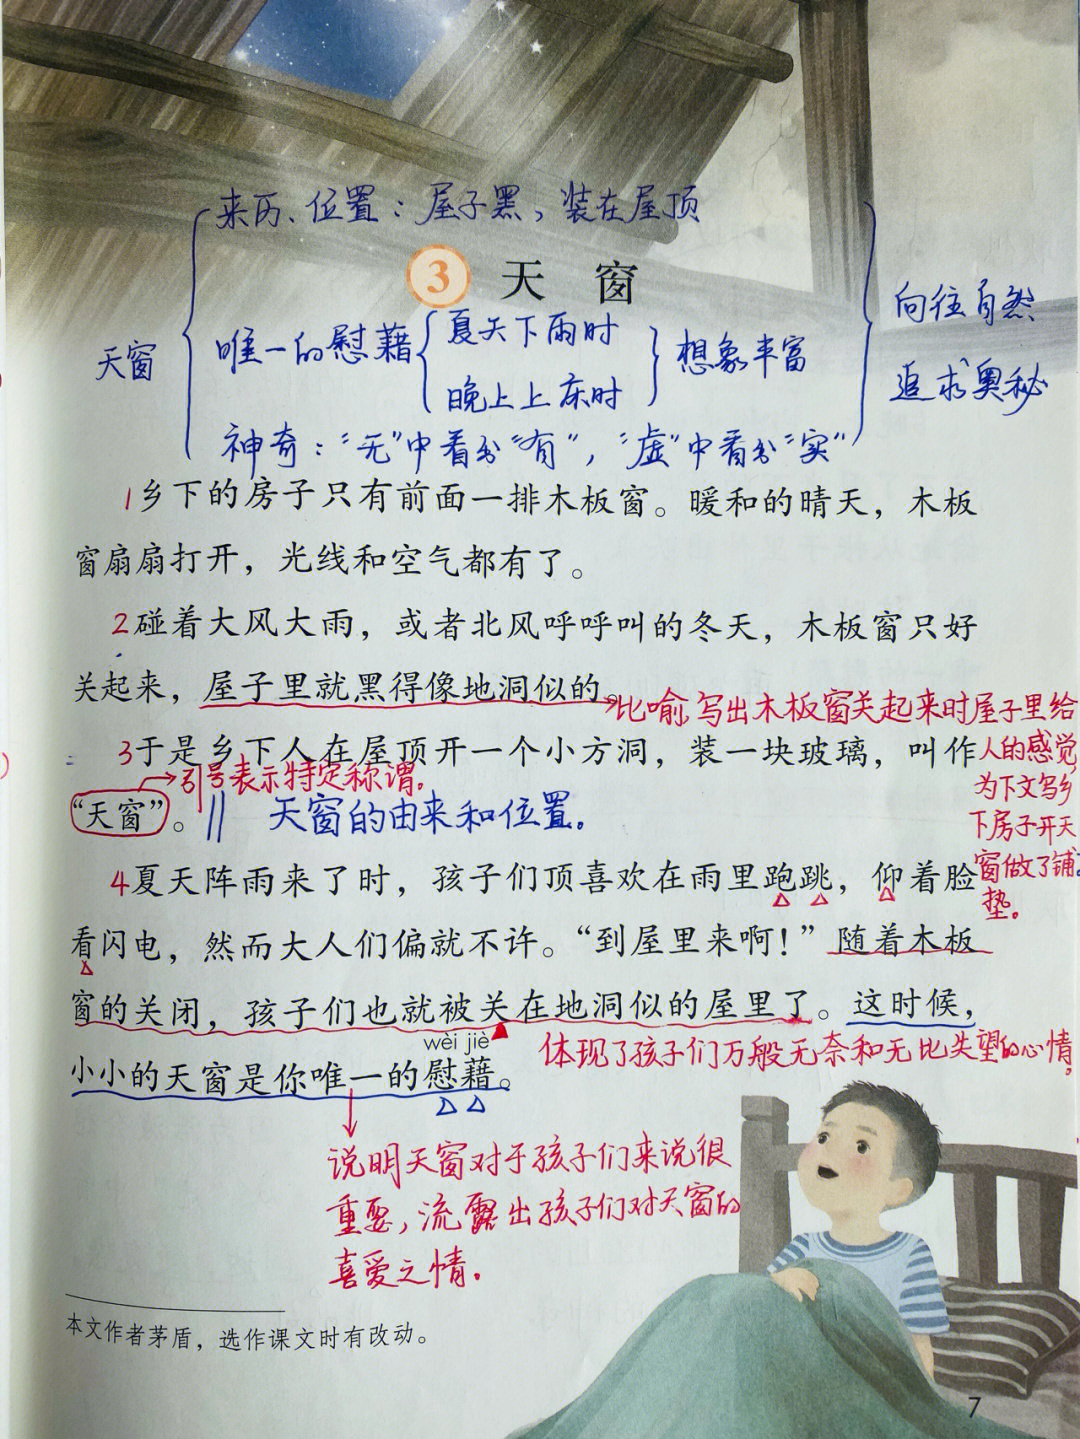 来历、位置：屋子黑，装在屋顶
3 天 窗
天窗
唯一的慰藉
夏天下雨时
晚上上床时
想象丰富
神奇：“无”中看出“有”，“虚”中看出“实”
向往自然
追求奥秘
1乡下的房子只有前面一排木板窗。暖和的晴天，木板
窗扇扇打开，光线和空气都有了。
2碰着大风大雨，或者北风呼呼叫的冬天，木板窗只好
关起来，屋子里就黑得像地洞似的。
比喻，写出木板窗关起来时屋子里给
人的感觉，
为下文写乡
下房子开天
窗做了铺
垫。
3于是乡下人在屋顶开一个小方洞，装一块玻璃，叫作
引号表示特定称谓。
“天窗”。
天窗的由来和位置。
4夏天阵雨来了时，孩子们顶喜欢在雨里跑跳，仰着脸
看闪电，然而大人们偏就不许。“到屋里来啊！”随着木板
窗的关闭，孩子们也就被关在地洞似的屋里了。这时候，
wèi jiè
小小的天窗是你唯一的慰藉。
体现了孩子们万般无奈和无比失望的心情。
说明天窗对于孩子们来说很
重要，流露出孩子们对天窗的
喜爱之情。
本文作者茅盾，选作课文时有改动。
7